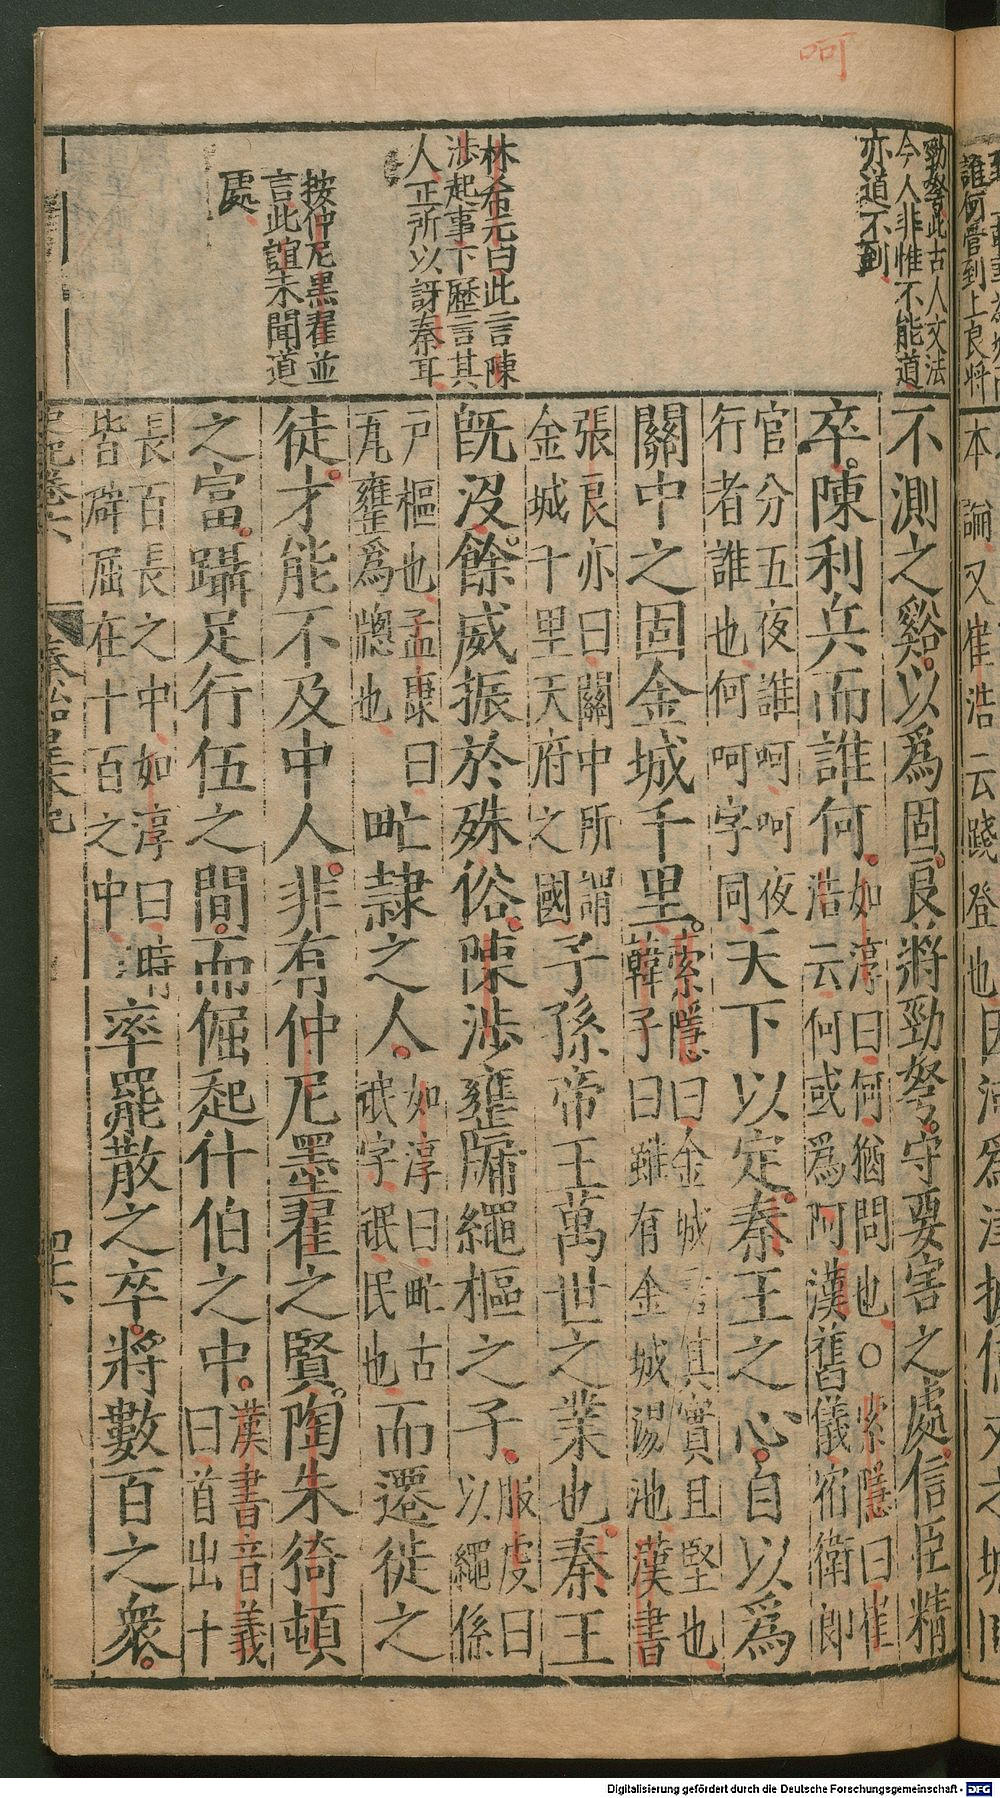 呵
勁弩此古人文法
今人非惟不能道
亦道不到
林希元曰此言陳
涉起事下歷言其
人正所以訝秦耳
按仲尼黑翟並
言此誼未聞道
處
不測之谿以爲固良將勁弩守要害之處信臣精
卒陳利兵而誰何如淳曰何猶問也○索隱曰崔浩云何或爲阿漢舊儀宿衛郎
官分五夜誰呵呵夜行者誰也何呵字同天下以定秦王之心自以爲
關中之固金城千里索隱曰金城言其實且堅也韓子曰雖有金城湯池漢書
張良亦曰關中所謂金城千里天府之國子孫帝王萬世之業也秦王
旣沒餘威振於殊俗陳涉甕牖繩樞之子服虔曰以繩係
戸樞也孟康曰瓦甕爲牕也甿隸之人如淳曰甿古氓字氓民也而遷徙之
徒才能不及中人非有仲尼墨翟之賢陶朱猗頓
之富躡足行伍之間而倔起什伯之中漢書音義曰首出十
長百長之中如淳曰時皆辟屈在十百之中率罷散之卒將數百之衆
史記卷六
秦始皇本紀
四十六
本論又崔浩云踐登也因河爲津據億丈之城
誰何管到上良將
Digitalisierung gefördert durch die Deutsche Forschungsgemeinschaft - DFG